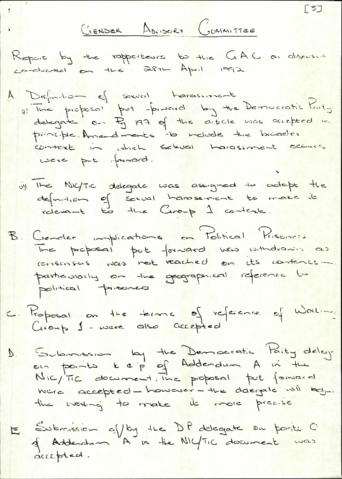 [5]
GENDER ADVISORY COMMITTEE
Report by the rapporteurs to the GAC on discussion
conducted on the 28th April 1992
A Definition of sexual harassment
i) The proposal put forward by the Democratic Party
delegate on Pg 197 of the article was accepted in
principle. Amendments to include the broader
context in which sexual harassment occurs
were put forward.
ii) The NIC/TIC delegate was assigned to adapt the
definition of sexual harassment to make it
relevant to the Group 1 context.
B. Gender implications on Political Prisoners
The proposal put forward was withdrawn as
consensus was not reached on its contents -
particularly on the geographical reference to
political prisoners
C. Proposal on the terms of reference of Working
Group 1 - were also accepted
D. Submission by the Democratic Party deleg-
on points & of Addendum A in the
NIC/TIC document, the proposal put forward
were accepted - however the delegate will
the wording to make it more precise
E Submission of/by the DP delegate on point C
of Addendum A in the NIC/TIC document was
accepted.